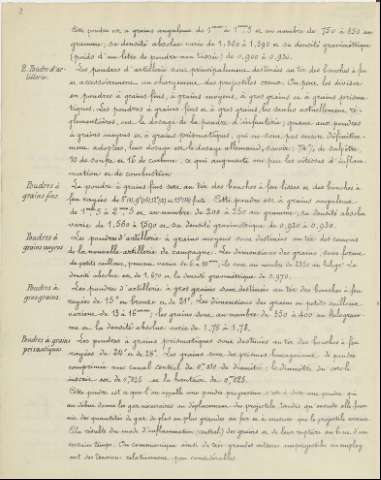 2
Cette poudre est à grains anguleux de 1mm à 1mm5 et au nombre de 750 à 850 au
gramme; sa densité absolue varie de 1,560 à 1,590 et sa densité gravimétrique
(poids d'un litre de poudre non tassée) de 0,900 à 0,930.
2. Poudre d'ar-
tillerie.
Les poudres d'artillerie sont principalement destinées au tir des bouches à feu
et accessoirement au chargement des projectiles creux. On peut les diviser
en poudres à grains fins, à grains moyens, à gros grains et à grains prisma-
tiques. Les poudres à grains fins et à gros grains, les seules actuellement ré-
glementaires, ont le dosage de la poudre d'infanterie; quant aux poudres
à grains moyens et à grains prismatiques, qui ne sont pas encore définitive-
ment adoptées, leur dosage est le dosage allemand, savoir: 74% de salpêtre,
10 de soufre et 16 de carbone, ce qui augmente un peu les vitesses d'inflam-
mation et de combustion
Poudres à
grains fins
La poudre à grains fins sert au tir des bouches à feu lisses et des bouches à
feu rayées de Cette poudre est à grains anguleux
de 1mm5 à 2mm5 et au nombre de 200 à 250 au gramme; sa densité absolue
varie de 1.560 à 1590 et sa densité gravimétrique de 0,920 à 0,930.
Poudres à
grains moyens
Les poudres d'artillerie à grains moyens sont destinées au tir des canons
de la nouvelle artillerie de campagne. Les dimensions des grains, sous forme
de petits cailloux, peuvent varier de 6 à 10mm; le nombre au kilogr. La
densité absolue est de 1.670 et la densité gravimétrique de 0.970.
Poudres à
gros grains
Les poudres d'artillerie à gros grains sont destinées au tir des bouches à feu
rayées de 15c en bronze et de 21c. Les dimensions des grains en petits cailloux
varient de 13 à 16mm; les grains sont au nombre de 350 à 400 au kilogram-
me et la densité absolue varie de 1.75 à 1.78.
Poudres à grains
prismatiques
Les poudres à grains prismatiques sont destinées au tir des bouches à feu
rayées de 24c et de 28c. Les grains sont des prismes hexagonaux de poudre
comprimée avec canal central de de diamètre; le diamètre du cercle
inscrit est de 0m,035 et la hauteur de 0m,025.
Cette poudre est ce que l'on appelle une poudre progressive, c'est à dire une poudre qui
au début donne les gaz nécessaires au déplacement du projectile, tandis qu'ensuite elle four-
nit des quantités de gaz de plus en plus grandes au fur et à mesure que le projectile avance.
Elle résulte du mode d'inflammation (central) des grains et de leur rupture au bout d'un
certain temps. On communique ainsi de très grandes vitesses aux projectiles en employ-
ant des tensions relativement peu considérables